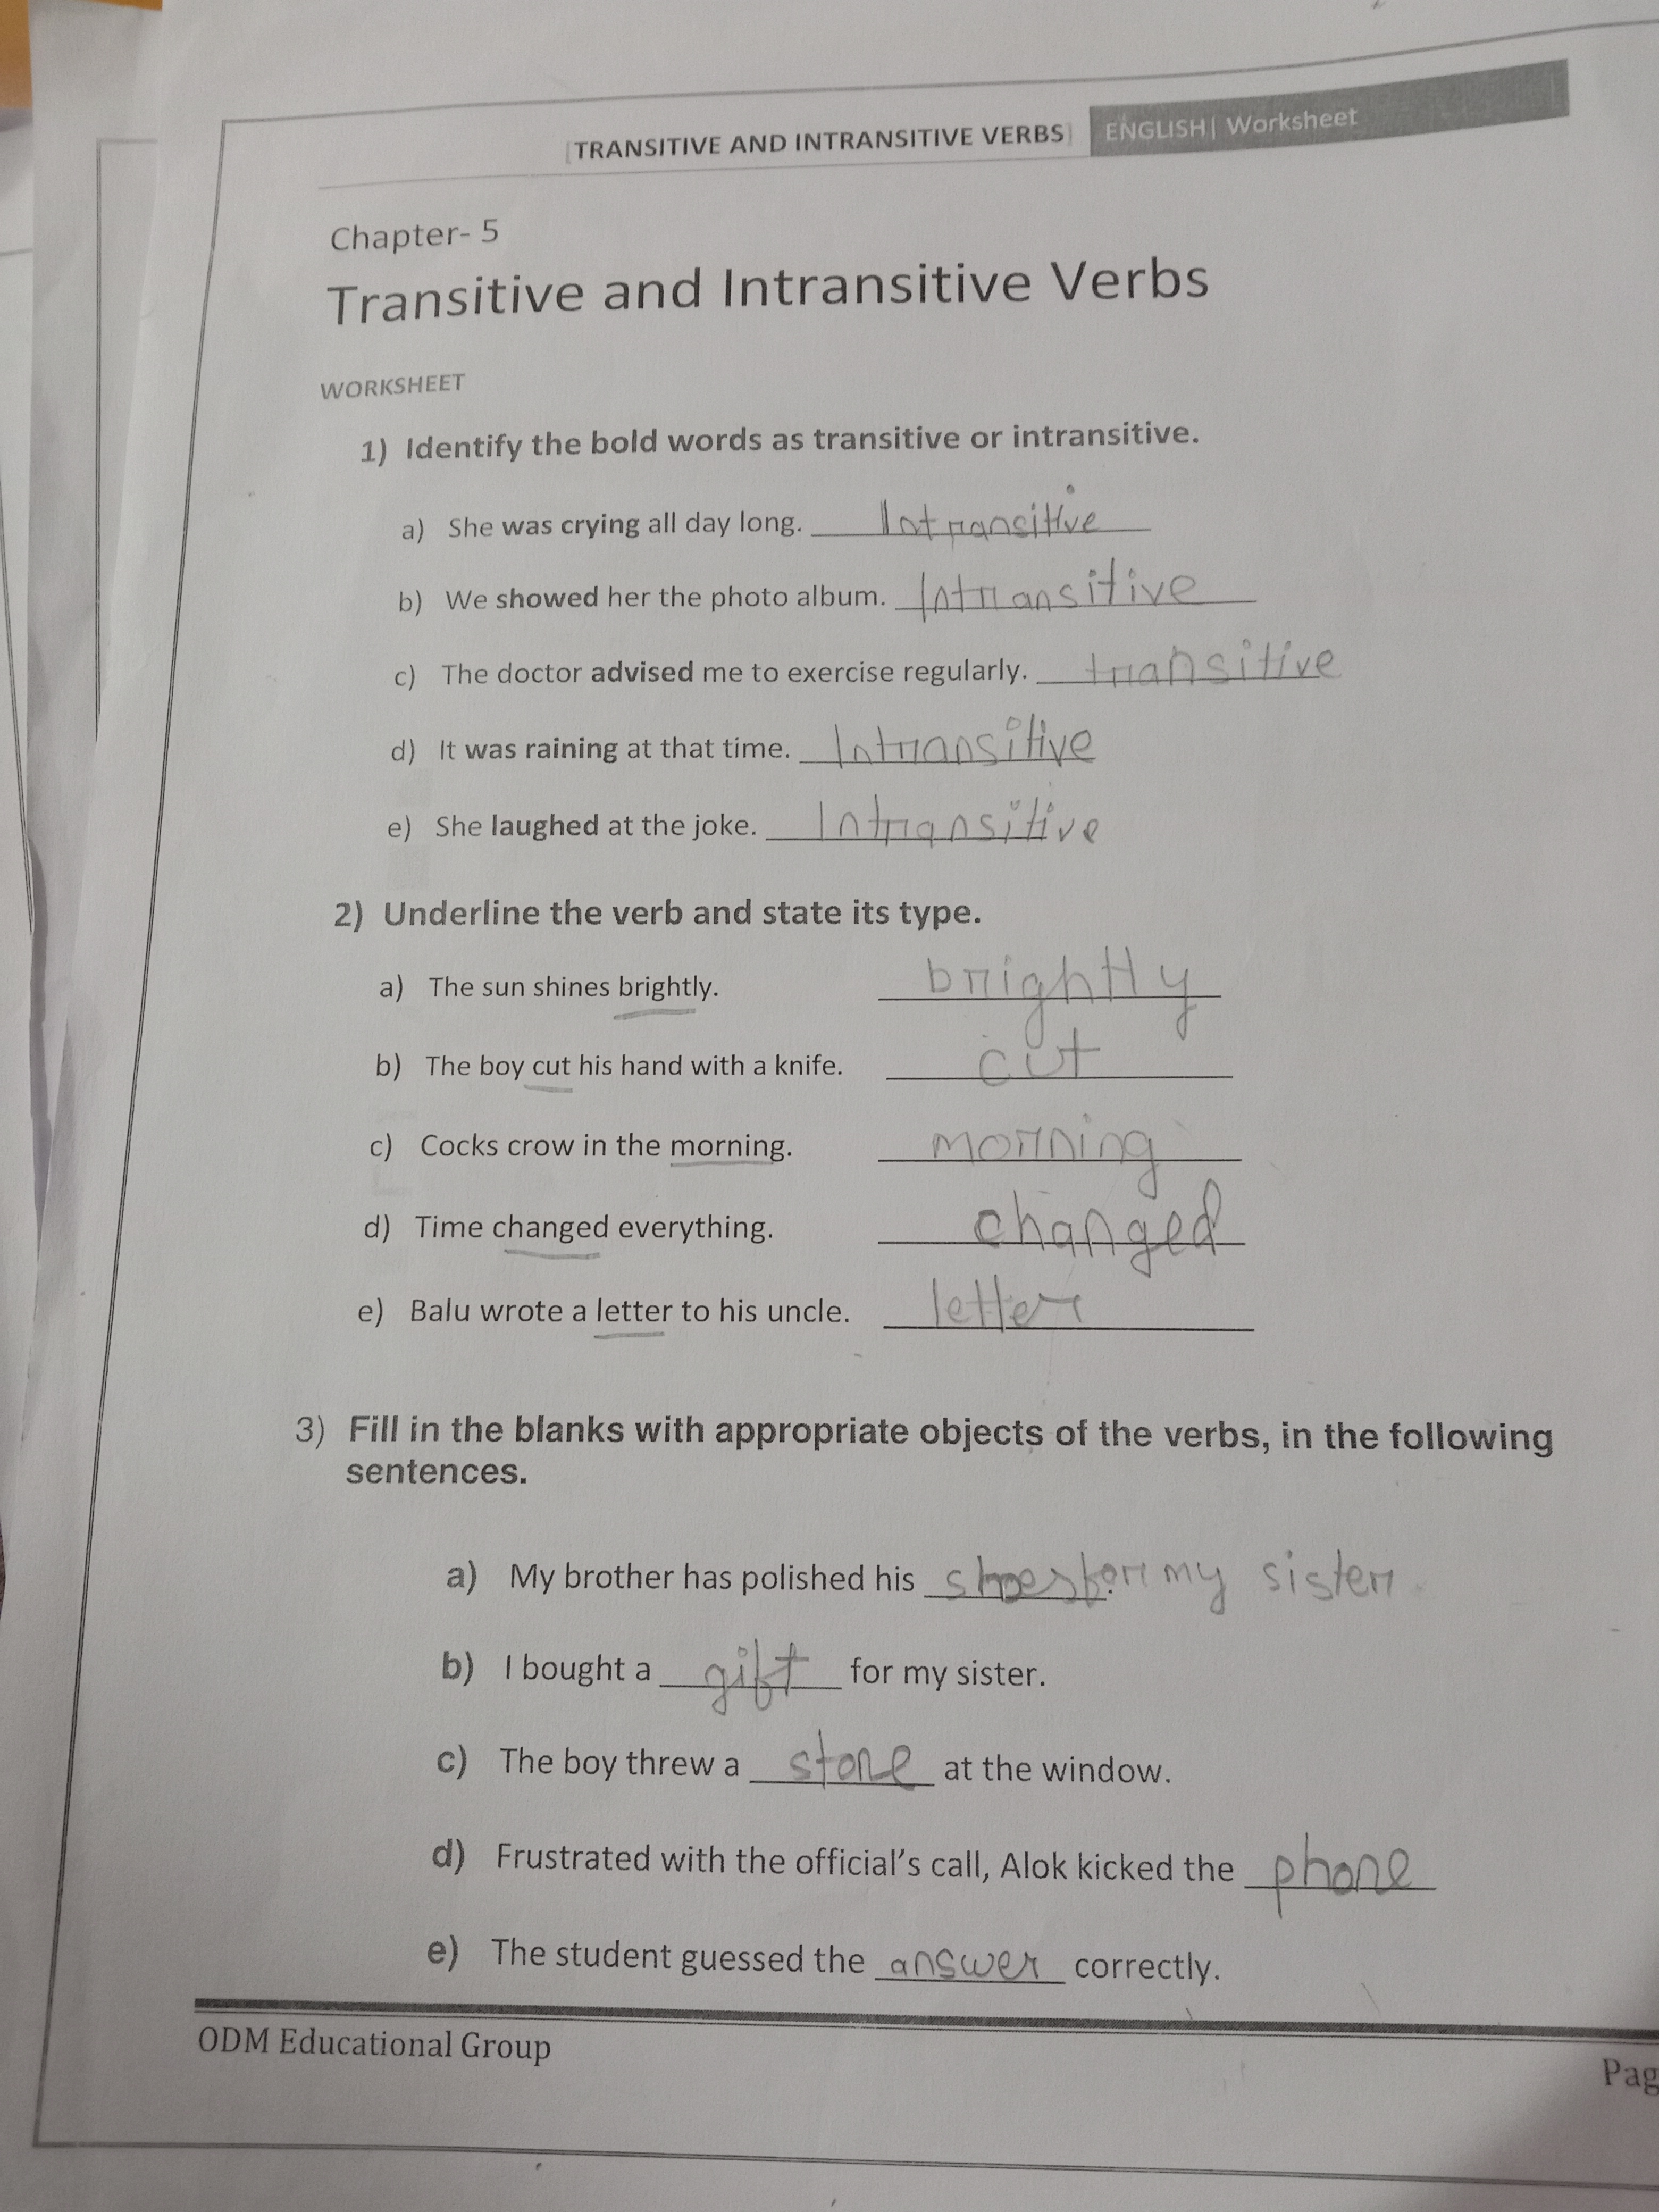 [TRANSITIVE AND INTRANSITIVE VERBS] ENGLISH| Worksheet
Chapter- 5
Transitive and Intransitive Verbs
WORKSHEET
1) Identify the bold words as transitive or intransitive.
a) She was crying all day long. Intransitive
b) We showed her the photo album. Intransitive
c) The doctor advised me to exercise regularly. transitive
d) It was raining at that time. Intransitive
e) She laughed at the joke. Intransitive
2) Underline the verb and state its type.
a) The sun shines brightly. brightly
b) The boy cut his hand with a knife. cut
c) Cocks crow in the morning. morning
d) Time changed everything. changed
e) Balu wrote a letter to his uncle. letter
3) Fill in the blanks with appropriate objects of the verbs, in the following
sentences.
a) My brother has polished his shoes for my sister.
b) I bought a gift for my sister.
c) The boy threw a stone at the window.
d) Frustrated with the official's call, Alok kicked the phone
e) The student guessed the answer correctly.
ODM Educational Group
Pag